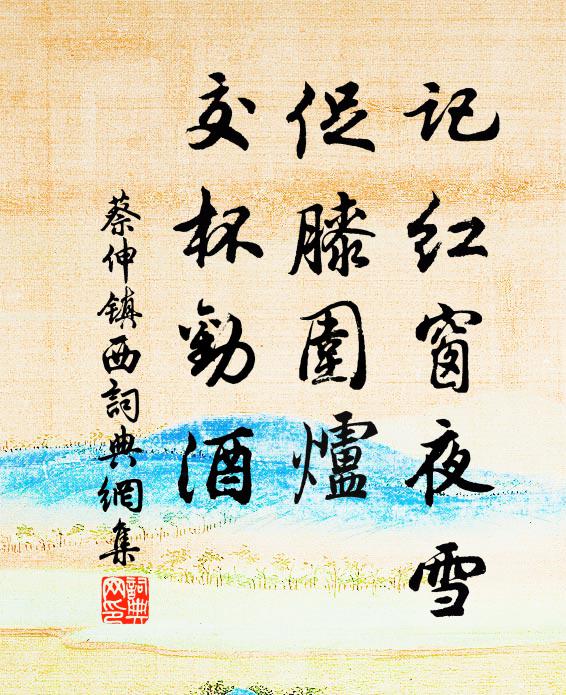 记红窗夜雪
促膝圍爐
交杯勸酒
蔡伸鎮西詞典網集
詞典网印